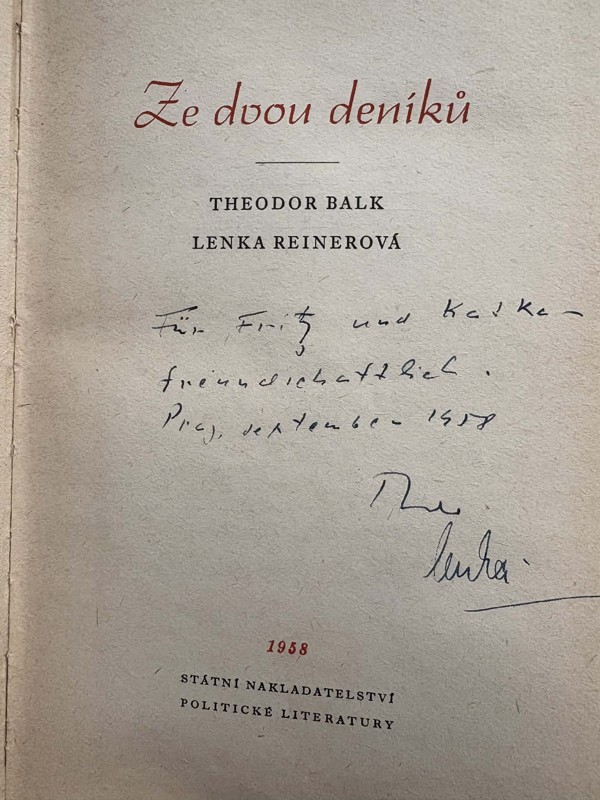 Ze dvou deníků
THEODOR BALK
LENKA REINEROVÁ
Für Fritz und Katka –
freundschaftlich.
Prag, september 1958
Theo
Lenka
1958
STÁTNÍ NAKLADATELSTVÍ
POLITICKÉ LITERATURY